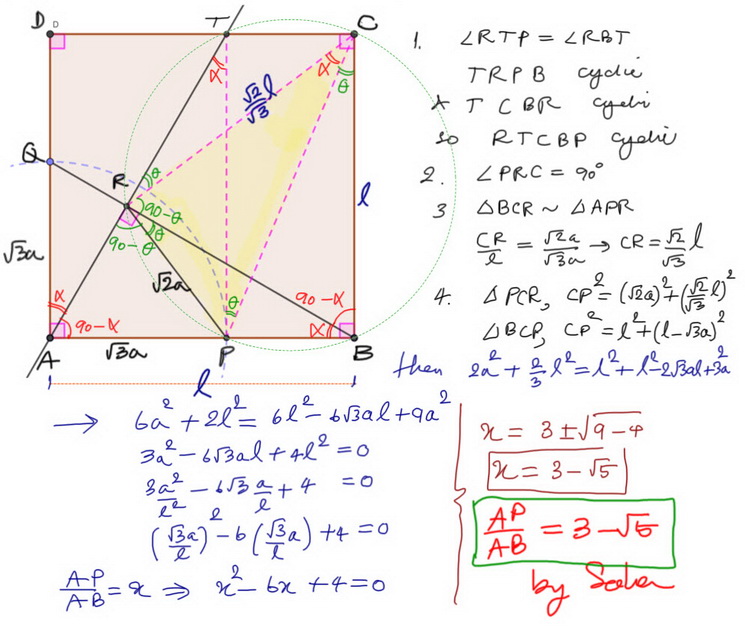 D D T C
α α θ
√2/√3 l
Q
R θ
90-θ
90-θ θ
l
√3a
√2a
α
90-α
θ
90-α
α
A √3a P B
l
1. ∠RTP = ∠RBT
TRPB cyclic
∧ TCBR cyclic
so RTCBP cyclic
2. ∠PRC = 90°
3 △BCR ~ △APR
CR/l = √2a/√3a → CR = √2/√3 l
4. △PCR, CP² = (√2a)² + (√2/√3 l)²
△BCP, CP² = l² + (l-√3a)²
then 2a² + 2/3 l² = l² + l² - 2√3al + 3a²
→ 6a² + 2l² = 6l² - 6√3al + 9a²
3a² - 6√3al + 4l² = 0
3a²/l² - 6√3 a/l + 4 = 0
(√3a/l)² - 6(√3a/l) + 4 = 0
AP/AB = x ⇒ x² - 6x + 4 = 0
x = 3 ± √9-4
x = 3 - √5
AP/AB = 3 - √5
by